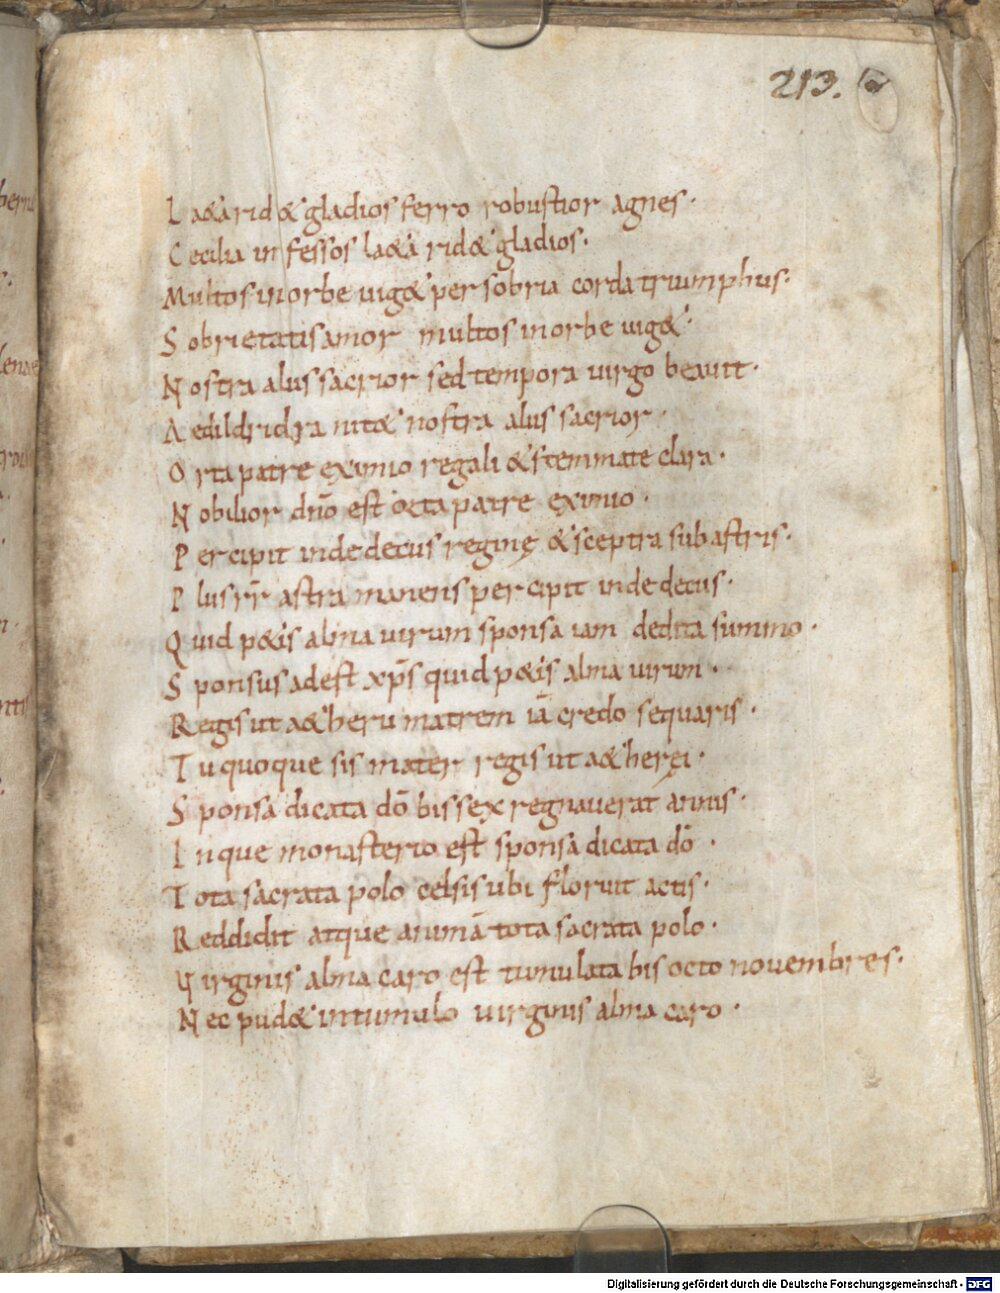 213.
L a&a rid& gladios ferro robustior agnes·
C ecilia infessos la&a rid& gladios·
Multos in orbe uig& per sobria corda triumphus·
S obrietatis amor multos in orbe uig&·
N ostra alus sacrior sed tempora uirgo beauit·
A edildridra nit& nostra alus sacrior·
O rta patre eximio regali & stemmate clara·
N obilior dño est orta patre eximio·
P ercipit inde decus reginę & sceptra sub astris·
P lus rr̄ astra manens percipit inde decus·
Q uid p&is alma uirum sponsa iam dedita summo·
S ponsus adest xp̄s quid p&is alma uirum·
Regis ut a&heru matrem iā credo sequaris·
T u quoque sis mater regis ut a&herei·
S ponsa dicata dō bissex regnauerat annis·
I nque monasterio est sponsa dicata dō·
T ota sacrata polo celsis ubi floruit actis·
R eddidit atque animā tota sacrata polo·
V irginis alma caro est tumulata bis octo nouembres·
N ec pud& in tumulo uirginis alma caro·
Digitalisierung gefördert durch die Deutsche Forschungsgemeinschaft - DFG